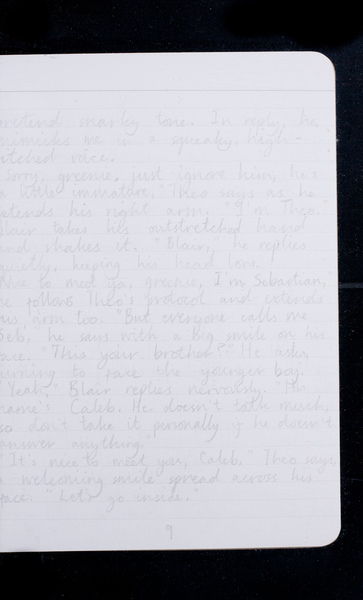 snarky tone. In reply, he
mimicks me in a squeaky, high-
pitched voice.
"Sorry, greenie, just ignore him, he's
a little immature." Theo says as he
extends his right arm. "I'm Theo."
Blair takes his outstretched hand
and shakes it. "Blair," he replies
quietly, keeping his head low.
"Nice to meet ya, greenie, I'm Sebastian,"
he follows Theo's protocol and extends
his arm too. "But everyone calls me
Seb," he says with a big smile on his
face. "This your brother?" He asks,
turning to face the younger boy.
"Yeah," Blair replies nervously. "His
name's Caleb. He doesn't talk much,
so don't take it personally if he doesn't
answer anything."
"It's nice to meet you, Caleb." Theo says,
a welcoming smile spread across his
face. "Let's go inside."
9